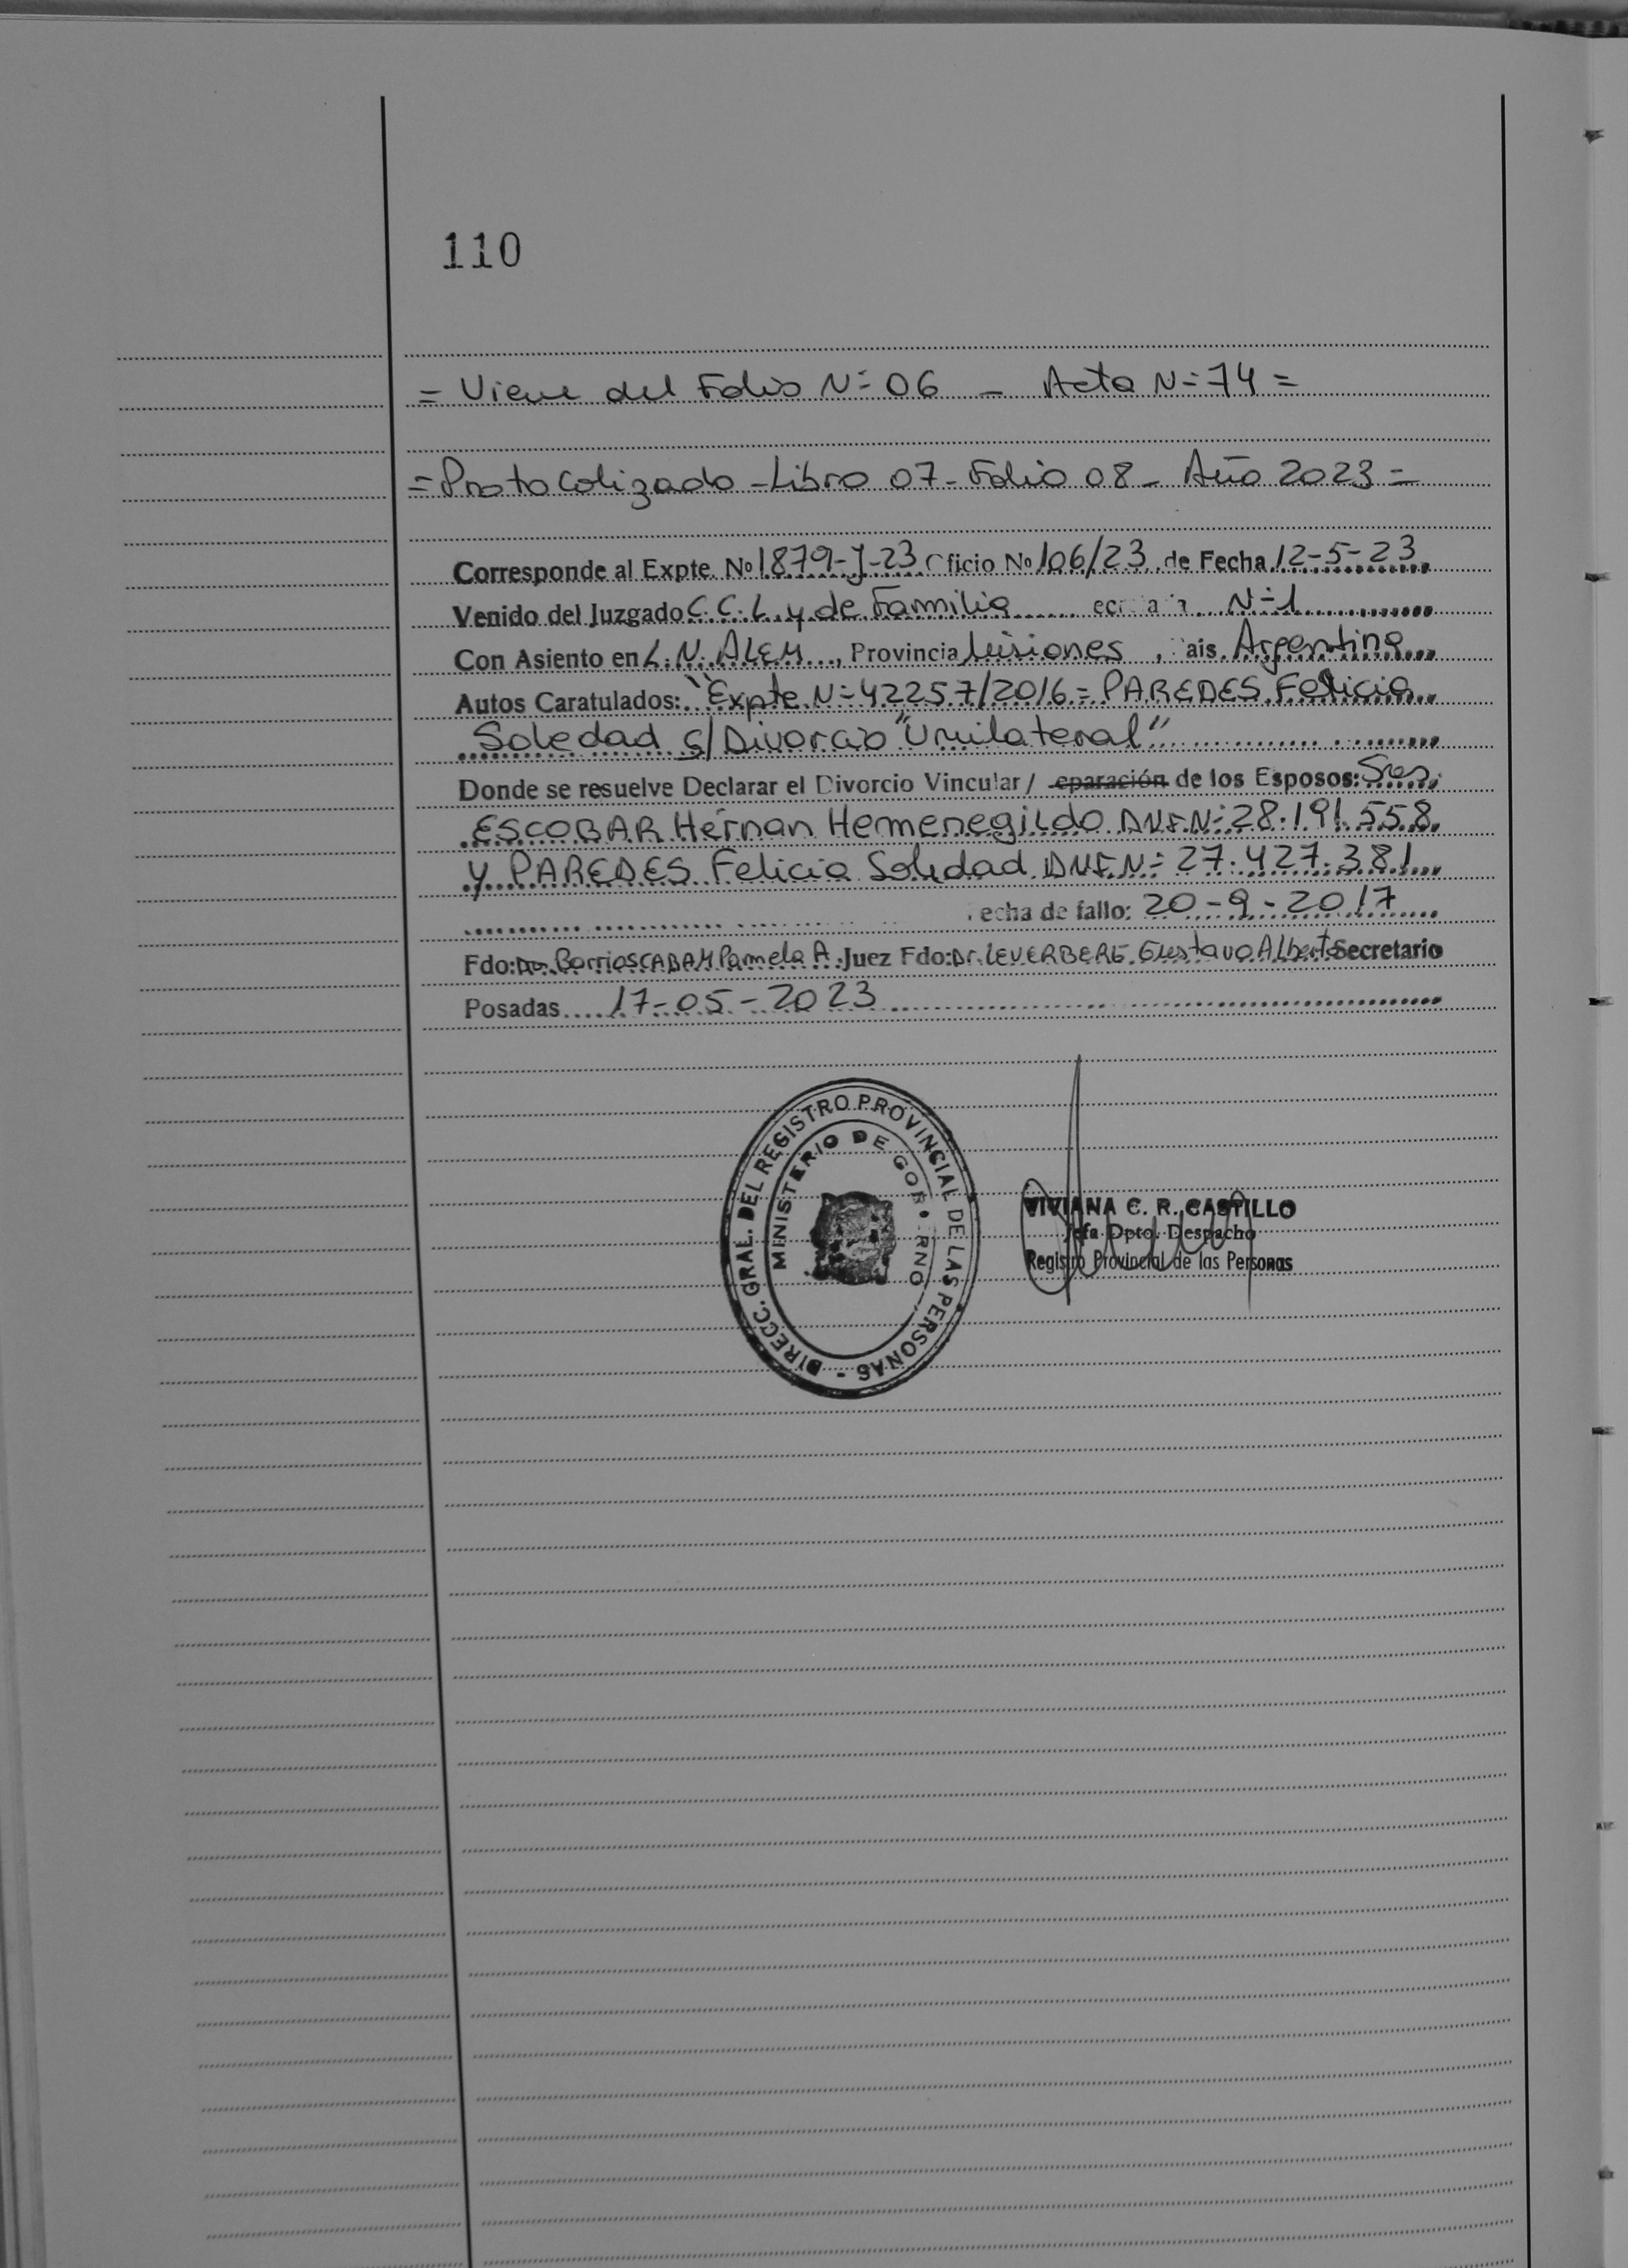 110
= Viene del Folio N= 06 - Acta N= 74 =
= Protocolizado - Libro 07 - Folio 08 - Año 2023 =
Corresponde al Expte. Nº 1879-J-23 Oficio Nº 106/23 de Fecha 12-5-23
Venido del Juzgado C.C.L. y de Familia N=1
Con Asiento en L.N. ALEM, Provincia Misiones, ais Argentina
Autos Caratulados: "Expte N= 42257/2016 = PAREDES Felicia
Soledad s/ Divorcio "Unilateral"
Donde se resuelve Declarar el Divorcio Vincular / eparación de los Esposos: Sres.
ESCOBAR Hernan Hemenegildo DNI N= 28.191.558
y PAREDES Felicia Soledad DNI N= 27.427.381
echa de fallo: 20-9-2017
Fdo: Dra. Barrios CABAM Pamela A. Juez Fdo: Dr. LEVERBERG Gustavo Alberto Secretario
Posadas 17-05-2023
DIRECC. GRAL. DEL REGISTRO PROVINCIAL DE LAS PERSONAS -
MINISTERIO DE GOBIERNO
VIVIANA C. R. CASTILLO
Jefa Dpto. Despacho
Registro Provincial de las Personas